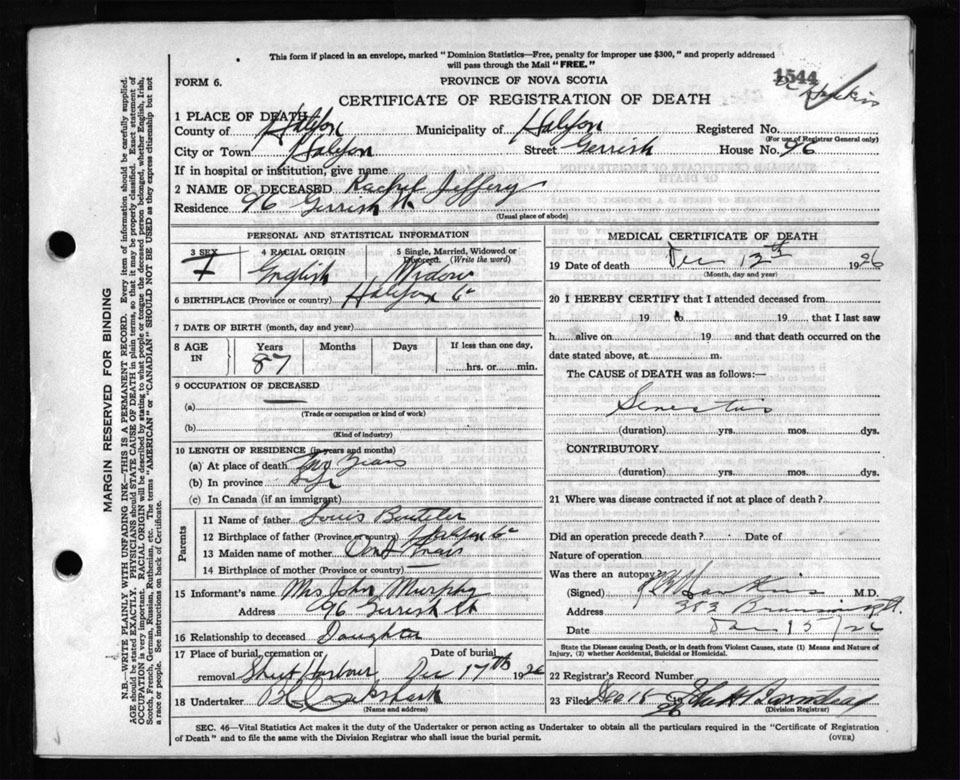 This form if placed in an envelope, marked "Dominion Statistics—Free, penalty for improper use $300," and properly addressed
will pass through the Mail "FREE."
FORM 6.
PROVINCE OF NOVA SCOTIA
1544
CERTIFICATE OF REGISTRATION OF DEATH
1 PLACE OF DEATH
County of Halifax Municipality of Halifax Registered No.
(For use of Registrar General only)
City or Town Halifax Street Gerrish House No. 96
If in hospital or institution, give name
2 NAME OF DECEASED Rachel Jeffery
Residence 96 Gerrish St.
(Usual place of abode)
MARGIN RESERVED FOR BINDING
N.B.—WRITE PLAINLY WITH UNFADING INK—THIS IS A PERMANENT RECORD. Every item of information should be carefully supplied.
AGE should be stated EXACTLY. PHYSICIANS should STATE CAUSE OF DEATH in plain terms, so that it may be properly classified. Exact statement of
OCCUPATION is very important. RACIAL ORIGIN will be described by stating to what people or tongue the deceased person belonged whether English, Irish,
Scotch, French, German, Russian, Ruthenian, etc. The terms "AMERICAN" or "CANADIAN" SHOULD NOT BE USED as they express citizenship but not
a race or people. See instructions on back of Certificate.
PERSONAL AND STATISTICAL INFORMATION
3 SEX
F
4 RACIAL ORIGIN
English
5 Single, Married, Widowed or
Divorced. (Write the word)
Widow
6 BIRTHPLACE (Province or country) Halifax Co
7 DATE OF BIRTH (month, day and year)
8 AGE IN
Years Months Days If less than one day,
87 hrs. or min.
9 OCCUPATION OF DECEASED
(a)
(Trade or occupation or kind of work)
(b)
(Kind of industry)
10 LENGTH OF RESIDENCE (in years and months)
(a) At place of death Years
(b) In province Life
(c) In Canada (if an immigrant)
Parents
11 Name of father Louis Boutilier
12 Birthplace of father (Province or country) Halifax Co
13 Maiden name of mother
14 Birthplace of mother (Province or country) —
15 Informant's name Mrs John Murphy
Address 96 Gerrish St
16 Relationship to deceased Daughter
17 Place of burial, cremation or Date of burial
removal Sheet Harbour Dec 17th 1926
18 Undertaker
(Name and address)
MEDICAL CERTIFICATE OF DEATH
19 Date of death Dec 12th 1926
(Month, day and year)
20 I HEREBY CERTIFY that I attended deceased from
19 to 19 that I last saw
h alive on 19 and that death occurred on the
date stated above, at m.
The CAUSE of DEATH was as follows:—
(duration) yrs. mos. dys.
CONTRIBUTORY
(duration) yrs. mos. dys.
21 Where was disease contracted if not at place of death?
Did an operation precede death? Date of
Nature of operation
Was there an autopsy?
(Signed) M.D.
Address 383 Brunswick St.
Date 15/26
State the Disease causing Death, or in death from Violent Causes, state (1) Means and Nature of
Injury, (2) whether Accidental, Suicidal or Homicidal.
22 Registrar's Record Number
23 Filed Dec
(Division Registrar)
SEC. 46—Vital Statistics Act makes it the duty of the Undertaker or person acting as Undertaker to obtain all the particulars required in the "Certificate of Registration
of Death" and to file the same with the Division Registrar who shall issue the burial permit.
(OVER)